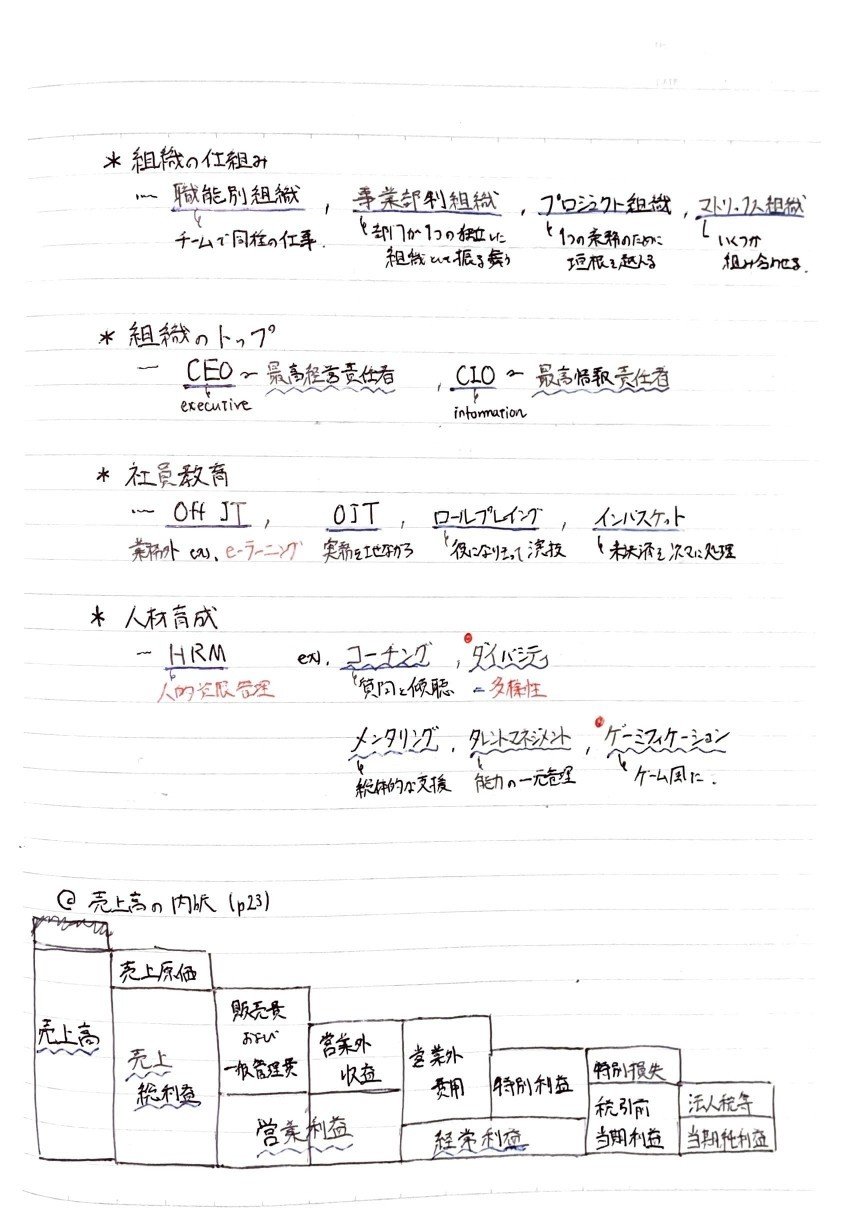 * 組織の仕組み
〜 職能別組織 , 事業部制組織 , プロジェクト組織 , マトリックス組織
チームで同種の仕事. 部門が1つの独立した 1つの業務のために いくつか
組織として振る舞う 垣根を越える 組み合わせる.
* 組織のトップ
〜 CEO 〜 最高経営責任者 , CIO 〜 最高情報責任者
executive information
* 社員教育
〜 Off JT , OJT , ロールプレイング , インバスケット
業務外 ex. e-ラーニング 役になりきって演技 未決済を次々に処理
* 人材育成
〜 HRM ex. コーチング , ダイバシティ
人的資源管理 質問と傾聴 = 多様性
メンタリング , タレントマネジメント , ゲーミフィケーション
総体的な支援 能力の一元管理 ゲーム風に.
@ 売上高の内訳 (p23)
売上原価
売上高
売上
総利益
販売費
および
一般管理費
営業外
収益
営業利益
営業外
費用
経常利益
特別利益
特別損失
税引前
当期利益
法人税等
当期純利益